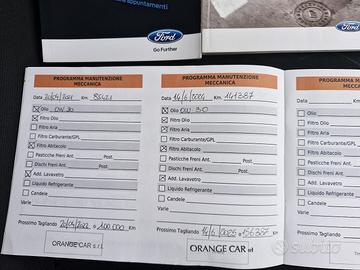 appuntamenti
Ford
Go Further
Ford
PROGRAMMA MANUTENZIONE
MECCANICA
Data 20/04/2021 Km.
Olio 0W30
Filtro Olio
Filtro Aria
Filtro Carburante/GPL
Filtro Abitacolo
Pasticche Freni Ant. Post.
Dischi Freni Ant. Post.
Add. Lavavetro
Liquido Refrigerante
Candele
Varie
Prossimo Tagliando 20/04/2022 o 100.000 Km
ORANGE CAR s.r.l.
PROGRAMMA MANUTENZIONE
MECCANICA
Data 14/6/2024 Km. 141387
Olio 0W 30
Filtro Olio
Filtro Aria
Filtro Carburante/GPL
Filtro Abitacolo
Pasticche Freni Ant. Post.
Dischi Freni Ant. Post.
Add. Lavavetro
Liquido Refrigerante
Candele
Varie
Prossimo Tagliando 14/6/2025 o 156387 Km
ORANGE CAR srl
PROGRAMMA
Data
Olio
Filtro Olio
Filtro Aria
Filtro Carburante
Filtro Abitacolo
Pasticche Freni
Dischi Freni Ant.
Add. Lavavetro
Liquido Refrigerante
Candele
Varie
Prossimo Tagliando
subito